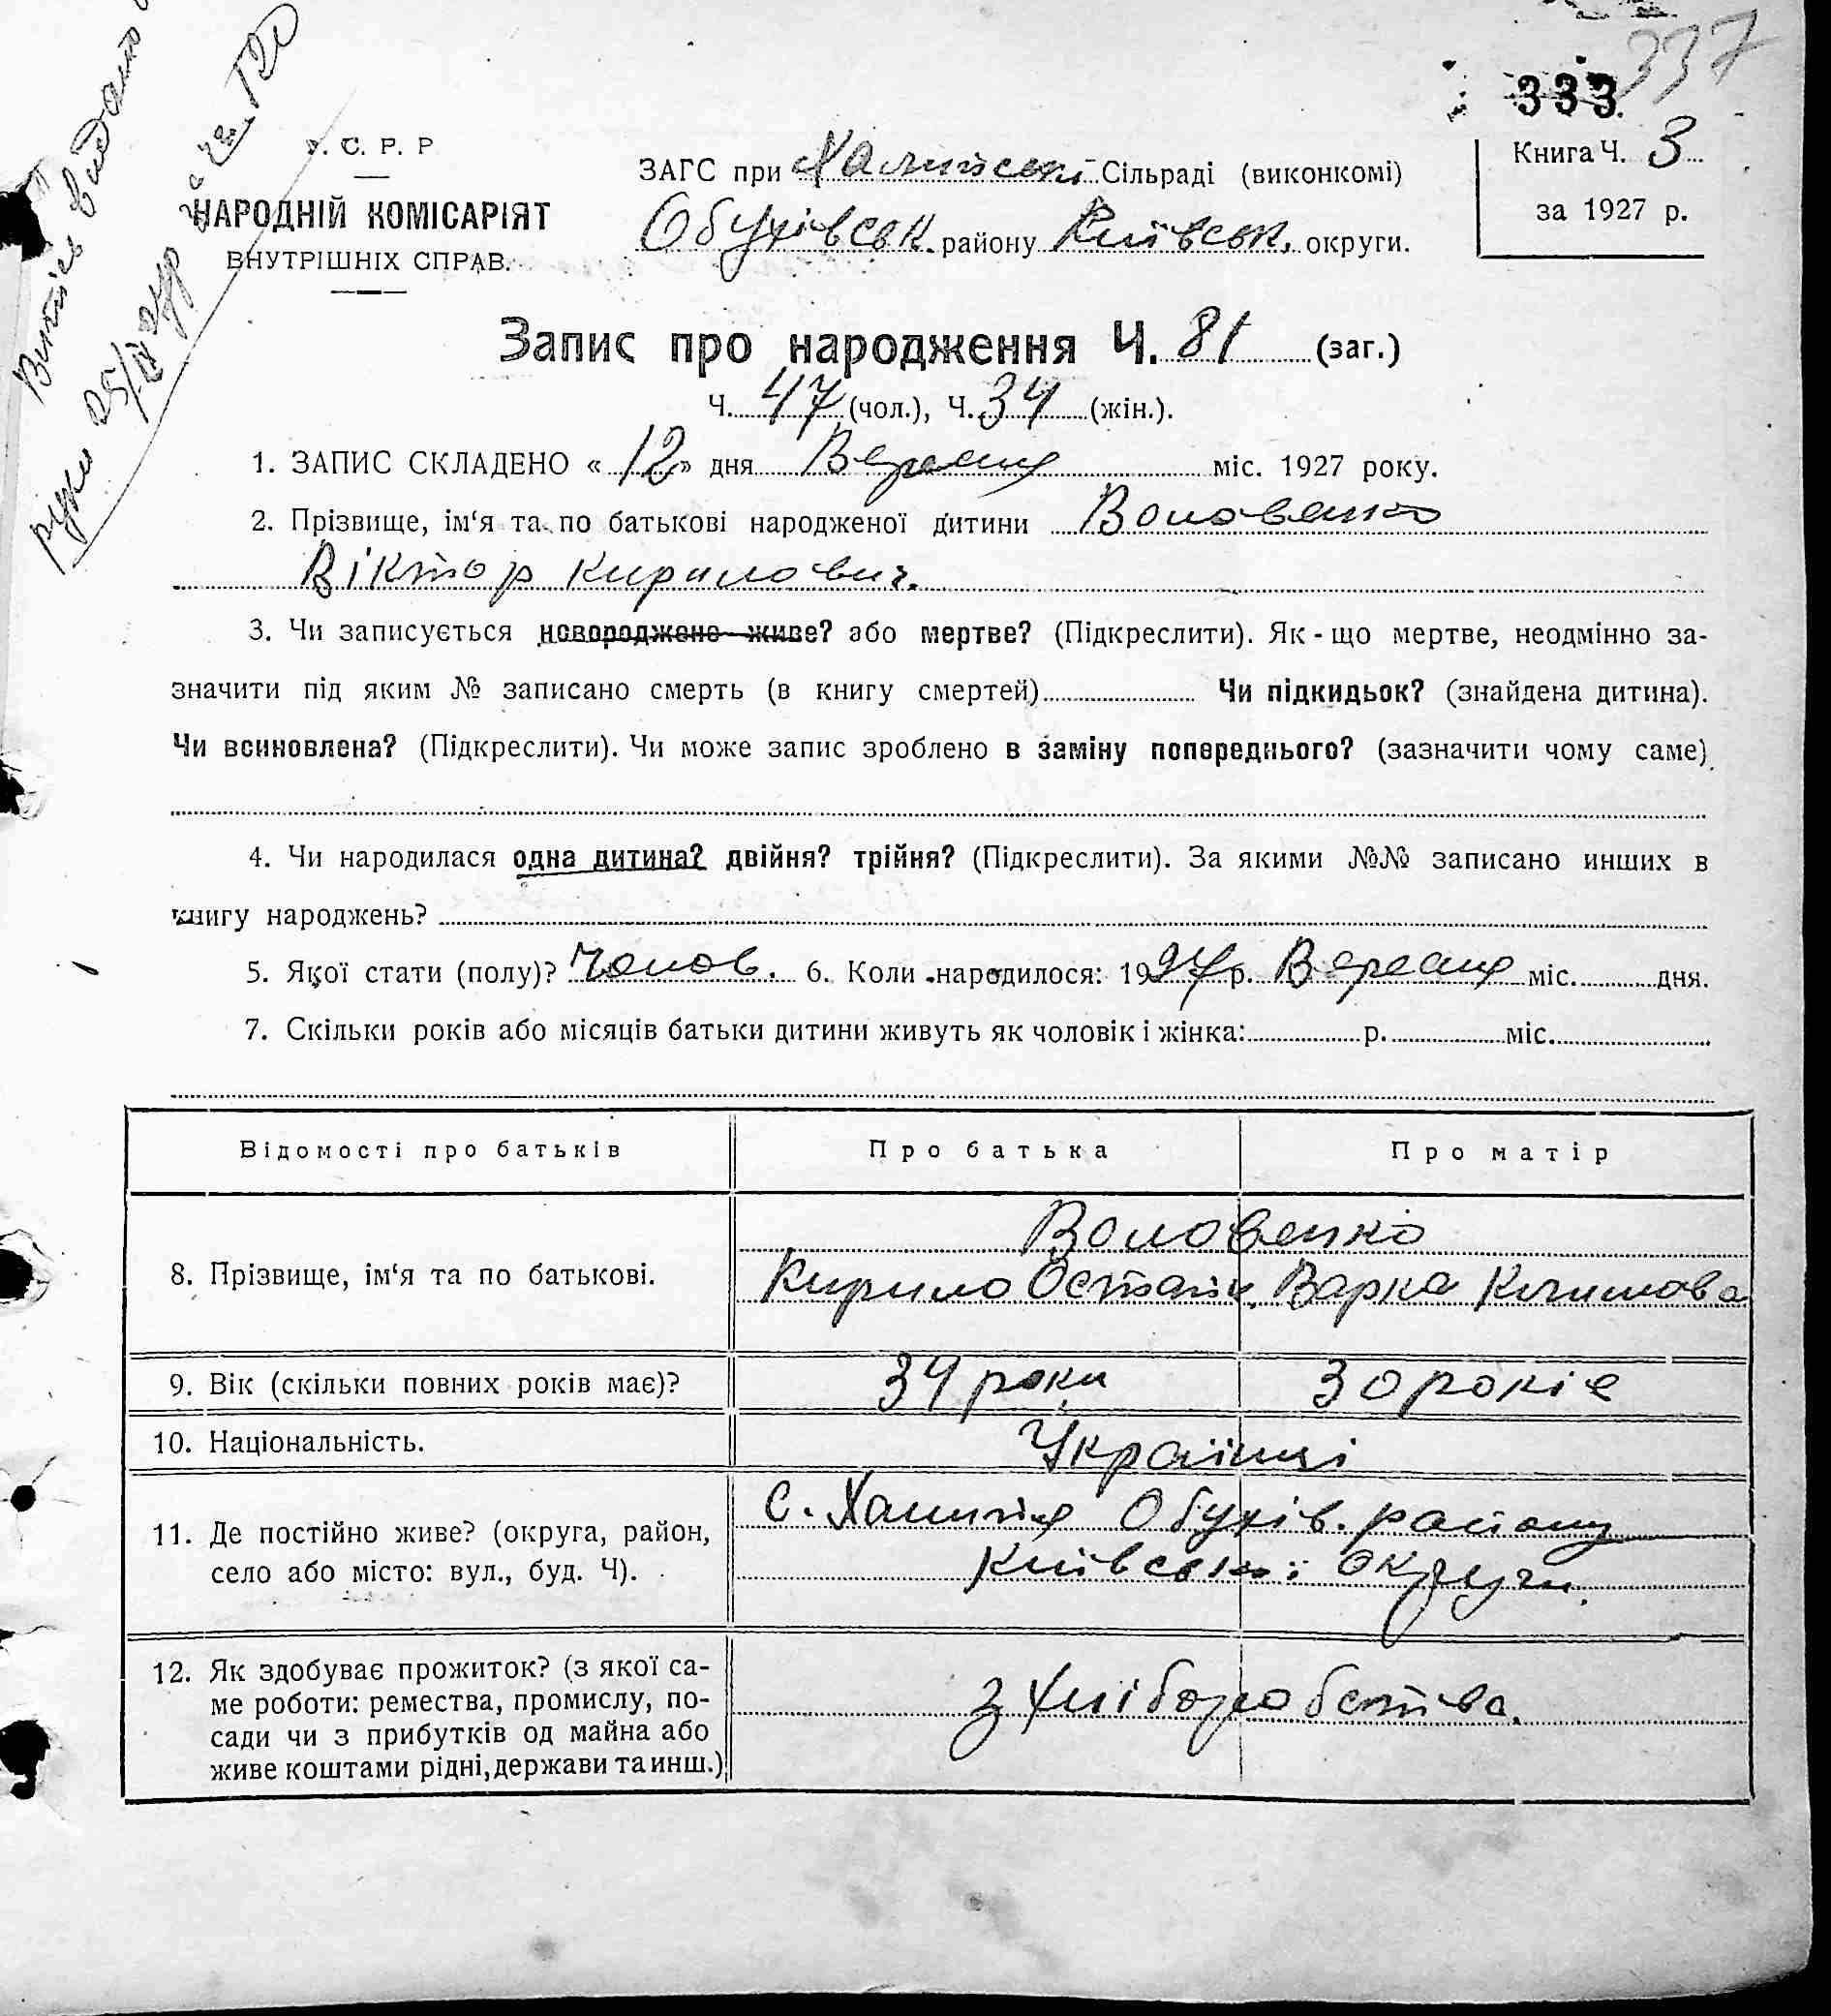 337
333.
У. С. Р. Р
НАРОДНІЙ КОМІСАРІЯТ
ВНУТРІШНІХ СПРАВ.
ЗАГС при Халпіській Сільраді (виконкомі)
Обухівськ. району Київськ. округи.
Книга Ч. 3
за 1927 р.
Витяг видано
руки 25/
Запис про народження Ч. 81 (заг.)
Ч. 47 (чол.), Ч. 34 (жін.).
1. ЗАПИС СКЛАДЕНО « 12 » дня Вересня міс. 1927 року.
2. Прізвище, ім‘я та по батькові народженої дитини Воловенко
Віктор Кирилович.
3. Чи записується новороджене живе? або мертве? (Підкреслити). Як-що мертве, неодмінно за-
значити під яким № записано смерть (в книгу смертей) Чи підкидьок? (знайдена дитина).
Чи всиновлена? (Підкреслити). Чи може запис зроблено в заміну попереднього? (зазначити чому саме)
4. Чи народилася одна дитина? двійня? трійня? (Підкреслити). За якими №№ записано инших в
книгу народжень?
5. Якої стати (полу)? Чолов. 6. Коли народилося: 1927 р. Вересня міс. дня.
7. Скільки років або місяців батьки дитини живуть як чоловік і жінка: р. міс.
Відомості про батьків Про батька Про матір
8. Прізвище, ім‘я та по батькові.
Воловенко
Кирило Остапів. Варка
9. Вік (скільки повних років має)? 34 роки 30 років
10. Національність. Українці
11. Де постійно живе? (округа, район,
село або місто: вул., буд. Ч).
с. Халип'я Обухів. району
Київської округи.
12. Як здобуває прожиток? (з якої са-
ме роботи: ремества, промислу, по-
сади чи з прибутків од майна або
живе коштами рідні, держави та инш.)
з хліборобства.